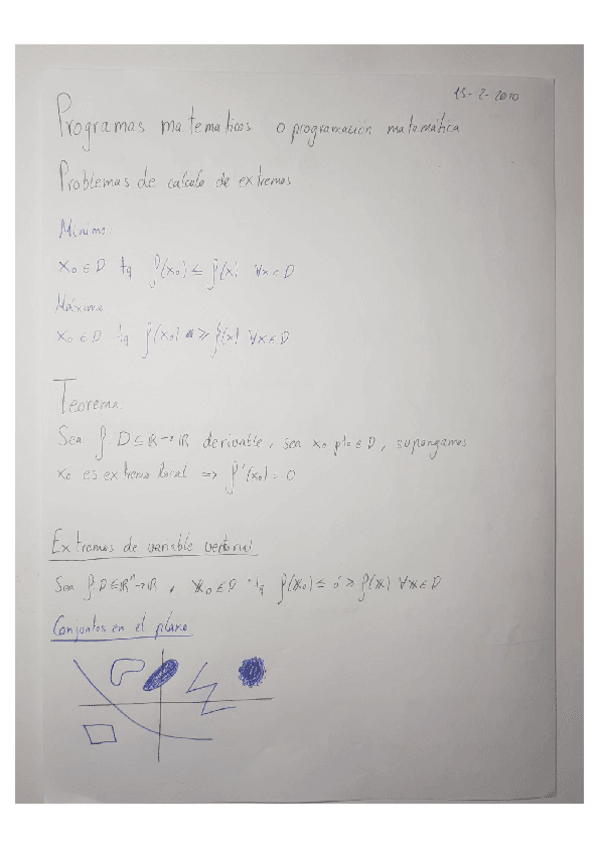 15-2-2010
Programas matematicos o programación matemática
Problemas de calculo de extremos
Mínimo:
x₀ ∈ D tq f(x₀) ≤ f(x) ∀x ∈ D
Máximo
x₀ ∈ D tq f(x₀) ≥ f(x) ∀x ∈ D
Teorema:
Sea f: D ⊆ ℝ → ℝ derivable, sea x₀ pto ∈ D, supongamos
x₀ es extremo local => f'(x₀) = 0
Extremos de variable vectorial
Sea f: D ⊆ ℝⁿ → ℝ, x₀ ∈ D tq f(x₀) ≤ ó ≥ f(x) ∀x ∈ D
Conjuntos en el plano